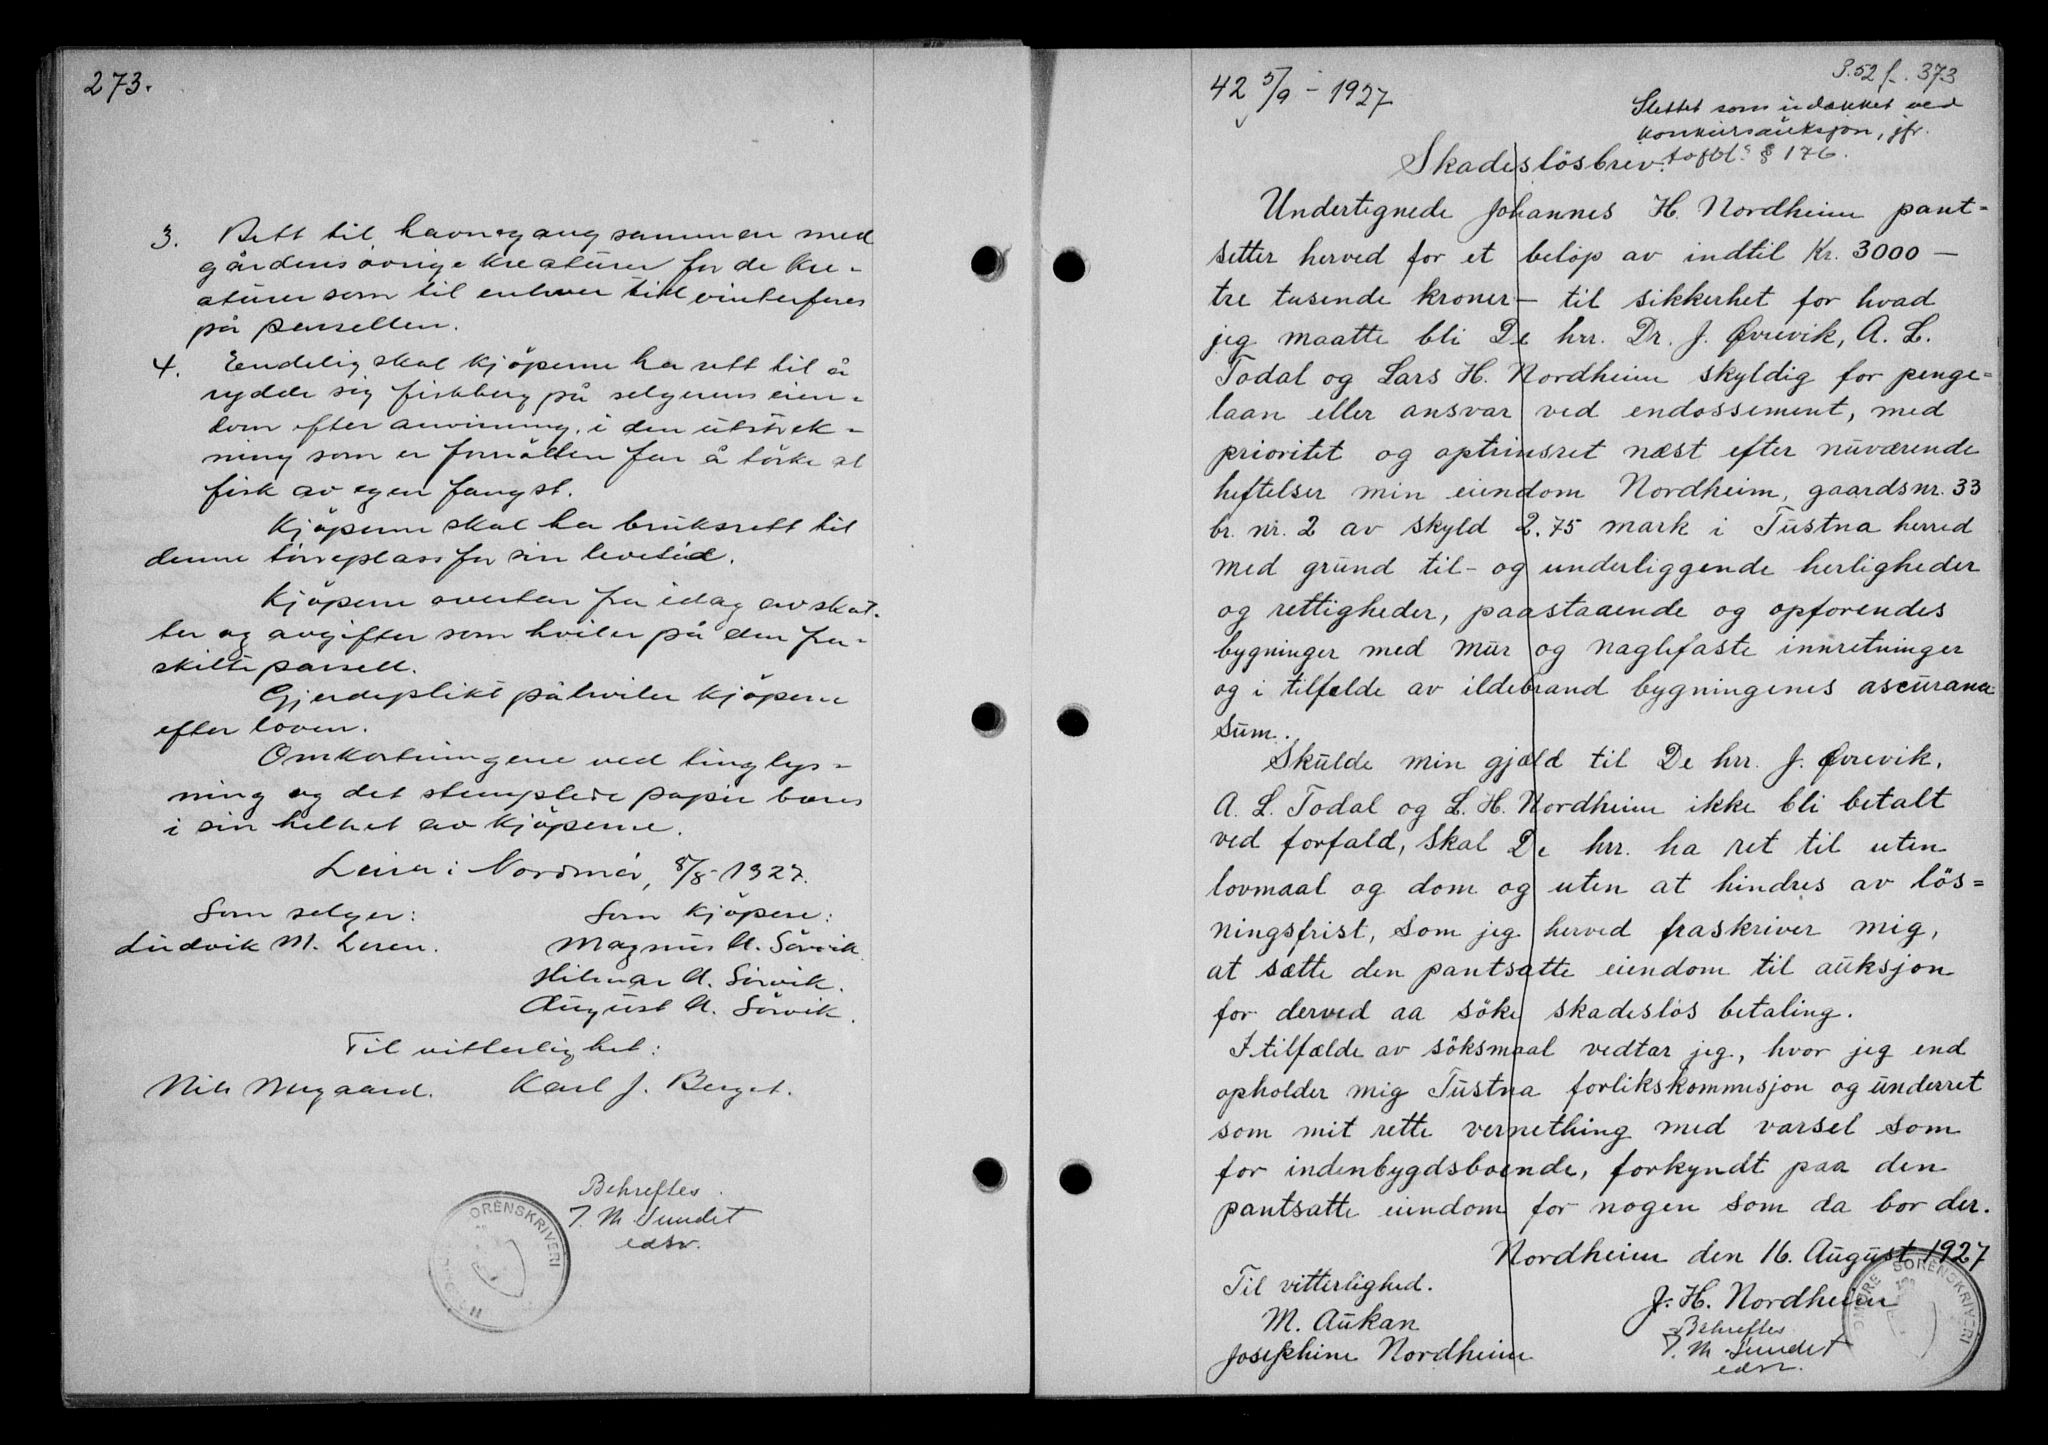 273.
3. Rett til havnegang sammen med
gårdens övrige kreaturer for de kre-
aturer som til enhver tid vinterfores
på parsellen.
4. Eendelig skal kjöperne ha rett til å
rydde sig fiskberg på selgerens eien-
dom efter anvisning, i den utstrek-
ning som er fornöden for å törke al
fisk av egen fangst.
Kjöperne skal ha bruksrett til
denne törreplass for sin levetid.
Kjöperne overtar fra idag av skat-
ter og avgifter som hviler på den fra-
skilte parsell.
Gjerdeplikt påhviler kjöperne
efter loven.
Omkostningene ved tinglys-
ning og det stemplede papir bæres
i sin helhet av kjöperne.
Leira i Nordmör, 8/8-1927.
Som selger: Som kjöpere:
Ludvik M. Leren. Magnus A. Sörvik.
Hilmar A. Sörvik.
August A. Sörvik.
Til vitterlighet:
Nils Nergaard. Karl J. Berget.
Behreftes.
T. M. Sundet
edsv.
SORENSKRIVERI
42 5/9 - 1927
P. 52 f. 373
Slettet som udækket ved
konkursauksjon, jfr.
tvfbl. § 176.
Skadeslösbrev.
Undertegnede Johannes H. Nordheim pant-
setter herved for et belöp av indtil Kr. 3000 —
tre tusende kroner — til sikkerhet for hvad
jeg maatte bli De hrr. Dr. J. Øvrevik, A. L.
Todal og Lars H. Nordheim skyldig for penge-
laan eller ansvar ved endossement, med
prioritet og optrinsret næst efter nuværende
heftelser min eiendom Nordheim, gaardsnr. 33
br. nr. 2 av skyld 2.75 mark i Tustna herred
med grund til- og underliggende herligheder
og rettigheder, paastaaende og opförendes
bygninger med mur og naglefaste innretninger
og i tilfelde av ildebrand bygningenes ascurance
sum.
Skulde min gjæld til De hrr. J. Øvrevik,
A. L. Todal og L. H. Nordheim ikke bli betalt
ved forfald, skal De hrr. ha ret til uten
lovmaal og dom og uten at hindres av lös=
ningsfrist, som jeg herved fraskriver mig,
at sætte den pantsatte eiendom til auksjon
for derved aa söke skadeslös betaling.
I tilfælde av söksmaal vedtar jeg, hvor jeg end
opholder mig Tustna forlikskommisjon og underret
som mit rette vernething med varsel som
for indenbygdsboende, forkyndt paa den
pantsatte eiendom for nogen som da bor der.
Nordheim den 16. August 1927
Til vitterlighed. J. H. Nordheim
M. Aukan Behreftes
Josephine Nordheim T. M. Sundet
edsv.
SORENSKRIVERI